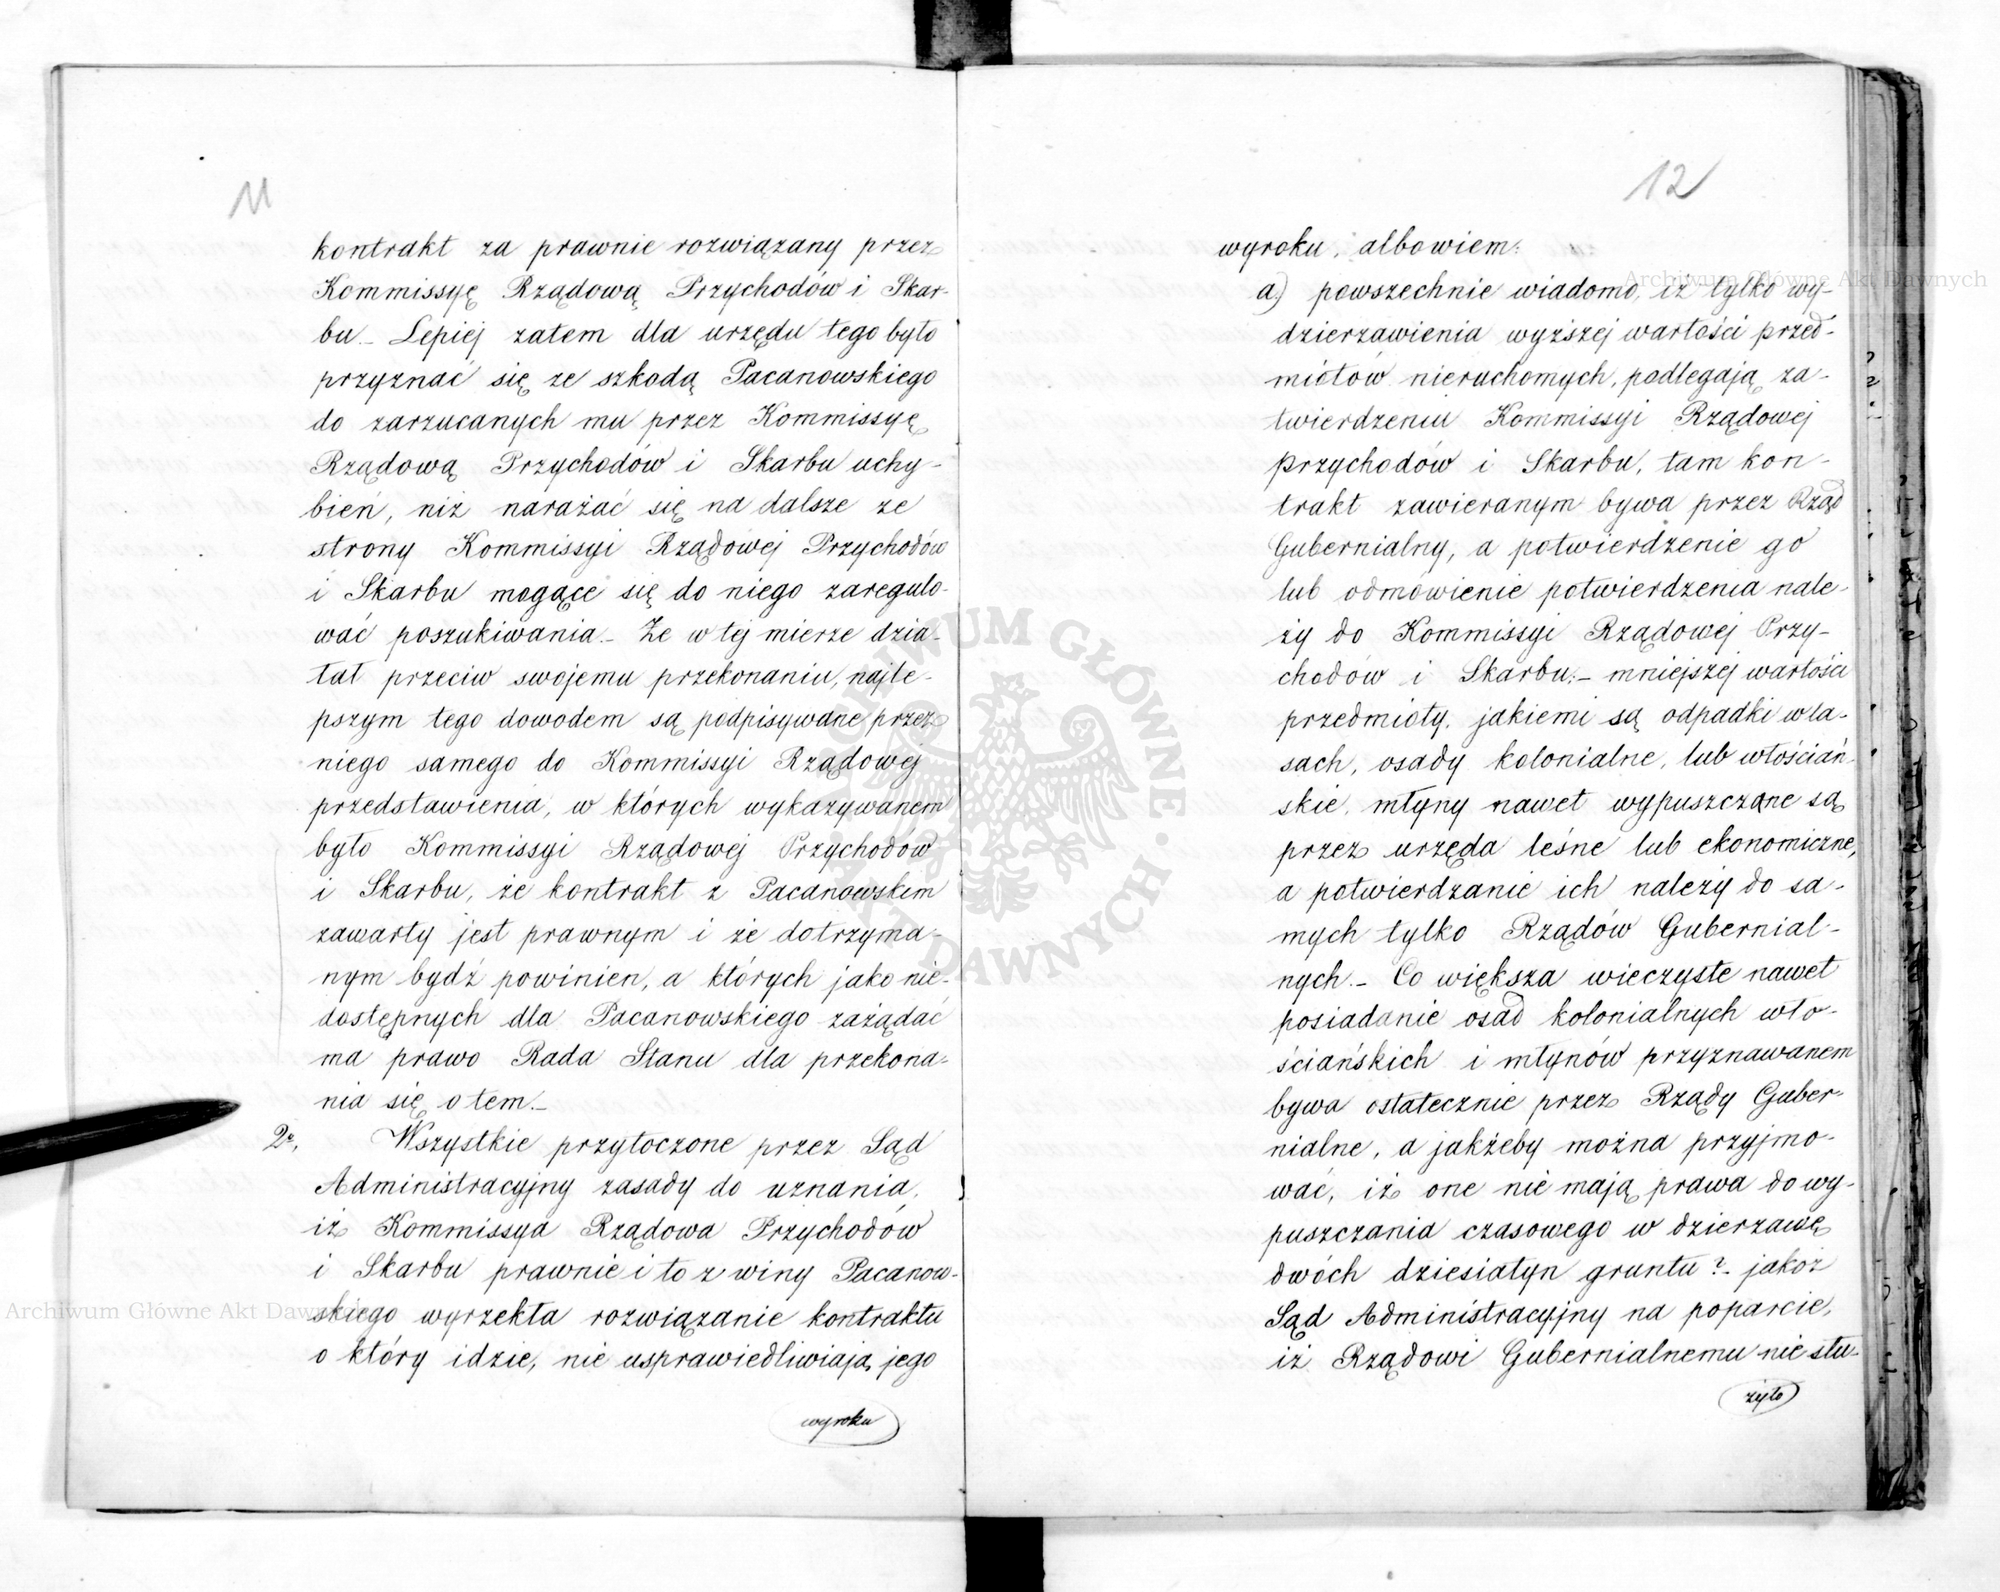 11
kontrakt za prawnie rozwiązany przez
Kommissyę Rządową Przychodów i Skar-
bu_ Lepiej zatem dla urzędu tego było
przyznać się ze szkodą Pacanowskiego
do zarzucanych mu przez Kommissyę
Rządową Przychodów i Skarbu uchy-
bień, niż narażać się na dalsze ze
strony Kommissyi Rządowej Przychodów
i Skarbu mogące się do niego zaregulo-
wać poszukiwania._ Że w tej mierze dzia-
łał przeciw swojemu przekonaniu, najle-
pszym tego dowodem są podpisywane przez
niego samego do Kommissyi Rządowej
przedstawienia, w których wykazywanem
było Kommissyi Rządowej Przychodów
i Skarbu, że kontrakt z Pacanowskim
zawarty jest prawnym i że dotrzyma-
nym bydź powinien, a których jako nie-
dostępnych dla Pacanowskiego zażądać
ma prawo Rada Stanu dla przekona-
nia się o tem._
2e, Wszystkie przytoczone przez Sąd
Administracyjny zasady do uznania,
iż Kommissya Rządowa Przychodów
i Skarbu prawnie i to z winy Pacanow-
skiego wyrzekła rozwiązanie kontraktu
o który idzie, nie usprawiedliwiają jego
wyroku
12
wyroku, albowiem:
a) powszechnie wiadomo, iż tylko wy-
dzierżawienia wyższej wartości przed-
miotów nieruchomych, podlegają za-
twierdzeniu Kommissyi Rządowej
Przychodów i Skarbu, tam kon-
trakt zawieranym bywa przez Rząd
Gubernialny, a potwierdzenie go
lub odmówienie potwierdzenia nale-
ży do Kommissyi Rządowej Przy-
chodów i Skarbu;- mniejszej wartości
przedmioty, jakiemi są odpadki w la-
sach, osady kolonialne, lub włościań-
skie, młyny nawet wypuszczane są
przez urzęda leśne lub ekonomiczne,
a potwierdzanie ich należy do sa-
mych tylko Rządów Gubernial-
nych._ Co większa wieczyste nawet
posiadanie osad kolonialnych wło-
ściańskich i młynów przyznawanem
bywa ostatecznie przez Rządy Guber-
nialne, a jakżeby można przyjmo-
wać, iż one nie mają prawa do wy-
puszczania czasowego w dzierżawę
dwóch dziesiatyn gruntu?_ jakoż
Sąd Administracyjny na poparcie,
iż Rządowi Gubernialnemu nie słu-
żyło
Archiwum Główne Akt Dawnych
Archiwum Główne Akt Dawnych
ARCHIWUM GŁÓWNE AKT DAWNYCH